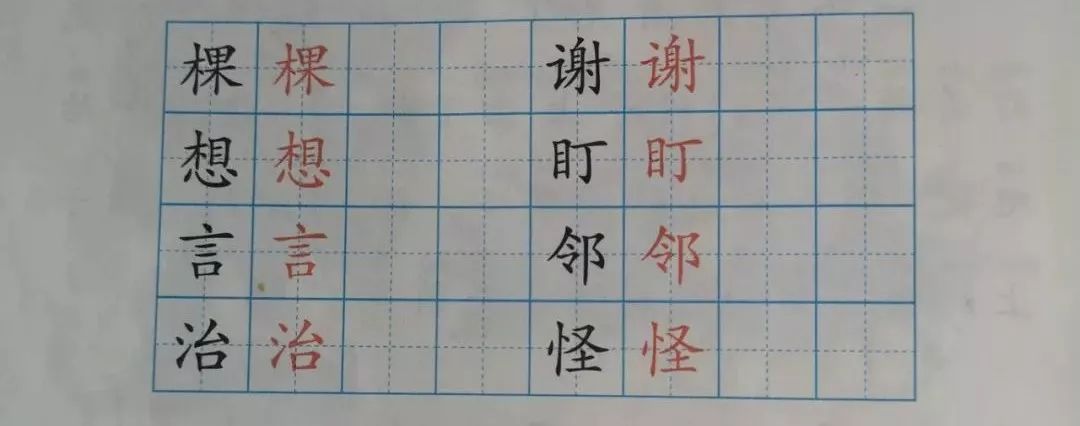 棵 棵 谢 谢
想 想 盯 盯
言 言 邻 邻
治 治 怪 怪